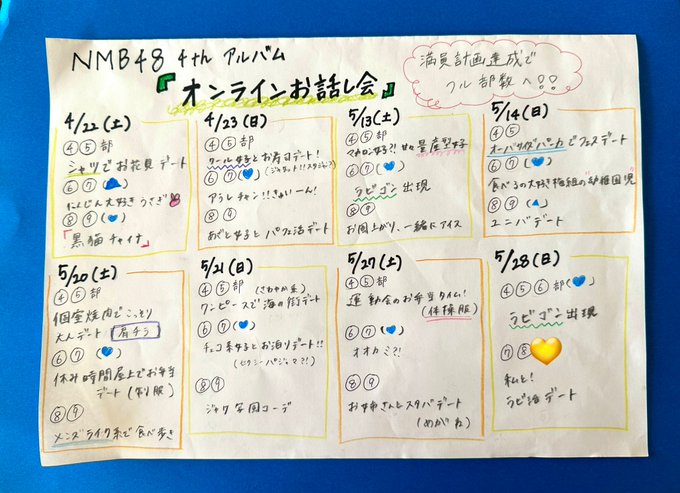 NMB48 4th アルバム
『オンラインお話し会』
満員計画達成で
フル部数へ!!
4/22(土)
④⑤部
シャツでお花見デート
⑥⑦
にんじん大好きうさぎ
⑧⑨
「黒猫チャイナ」
4/23(日)
④⑤部
クール女子とお寿司デート!
⑥⑦
アラレチャン!!きょいーん!
⑧⑨
あざと女子とパフェ活デート
5/13(土)
④⑤部
マカロン女子?!甘々量産型女子
⑥⑦
ラビゴン出現
⑧⑨
お風呂上がり、一緒にアイス
5/14(日)
④⑤
オーバーサイズパーカーでフェスデート
⑥⑦
食べるの大好き梅組の"幼稚園児"
⑧⑨
ユニバデート
5/20(土)
④⑤部
個室焼肉でこっそり
大人デート 肩チラ
⑥⑦
休み時間屋上でお弁当
デート(制服)
⑧⑨
メンズライク系で食べ歩き
5/21(日)
④⑤部(さわやか系)
ワンピースで海の街デート
⑥⑦
チェコ系女子とお泊りデート!!
(セクシーパジャマで?!)
⑧⑨
ジャク写同コーデ
5/27(土)
④⑤部
運動会のお弁当タイム!
(体操服)
⑥⑦
オオカミ?!
⑧⑨
お姉さんとスタバデート
(めがね)
5/28(日)
④⑤⑥部
ラビゴン出現
⑦⑧
私と!
ラビ治デート